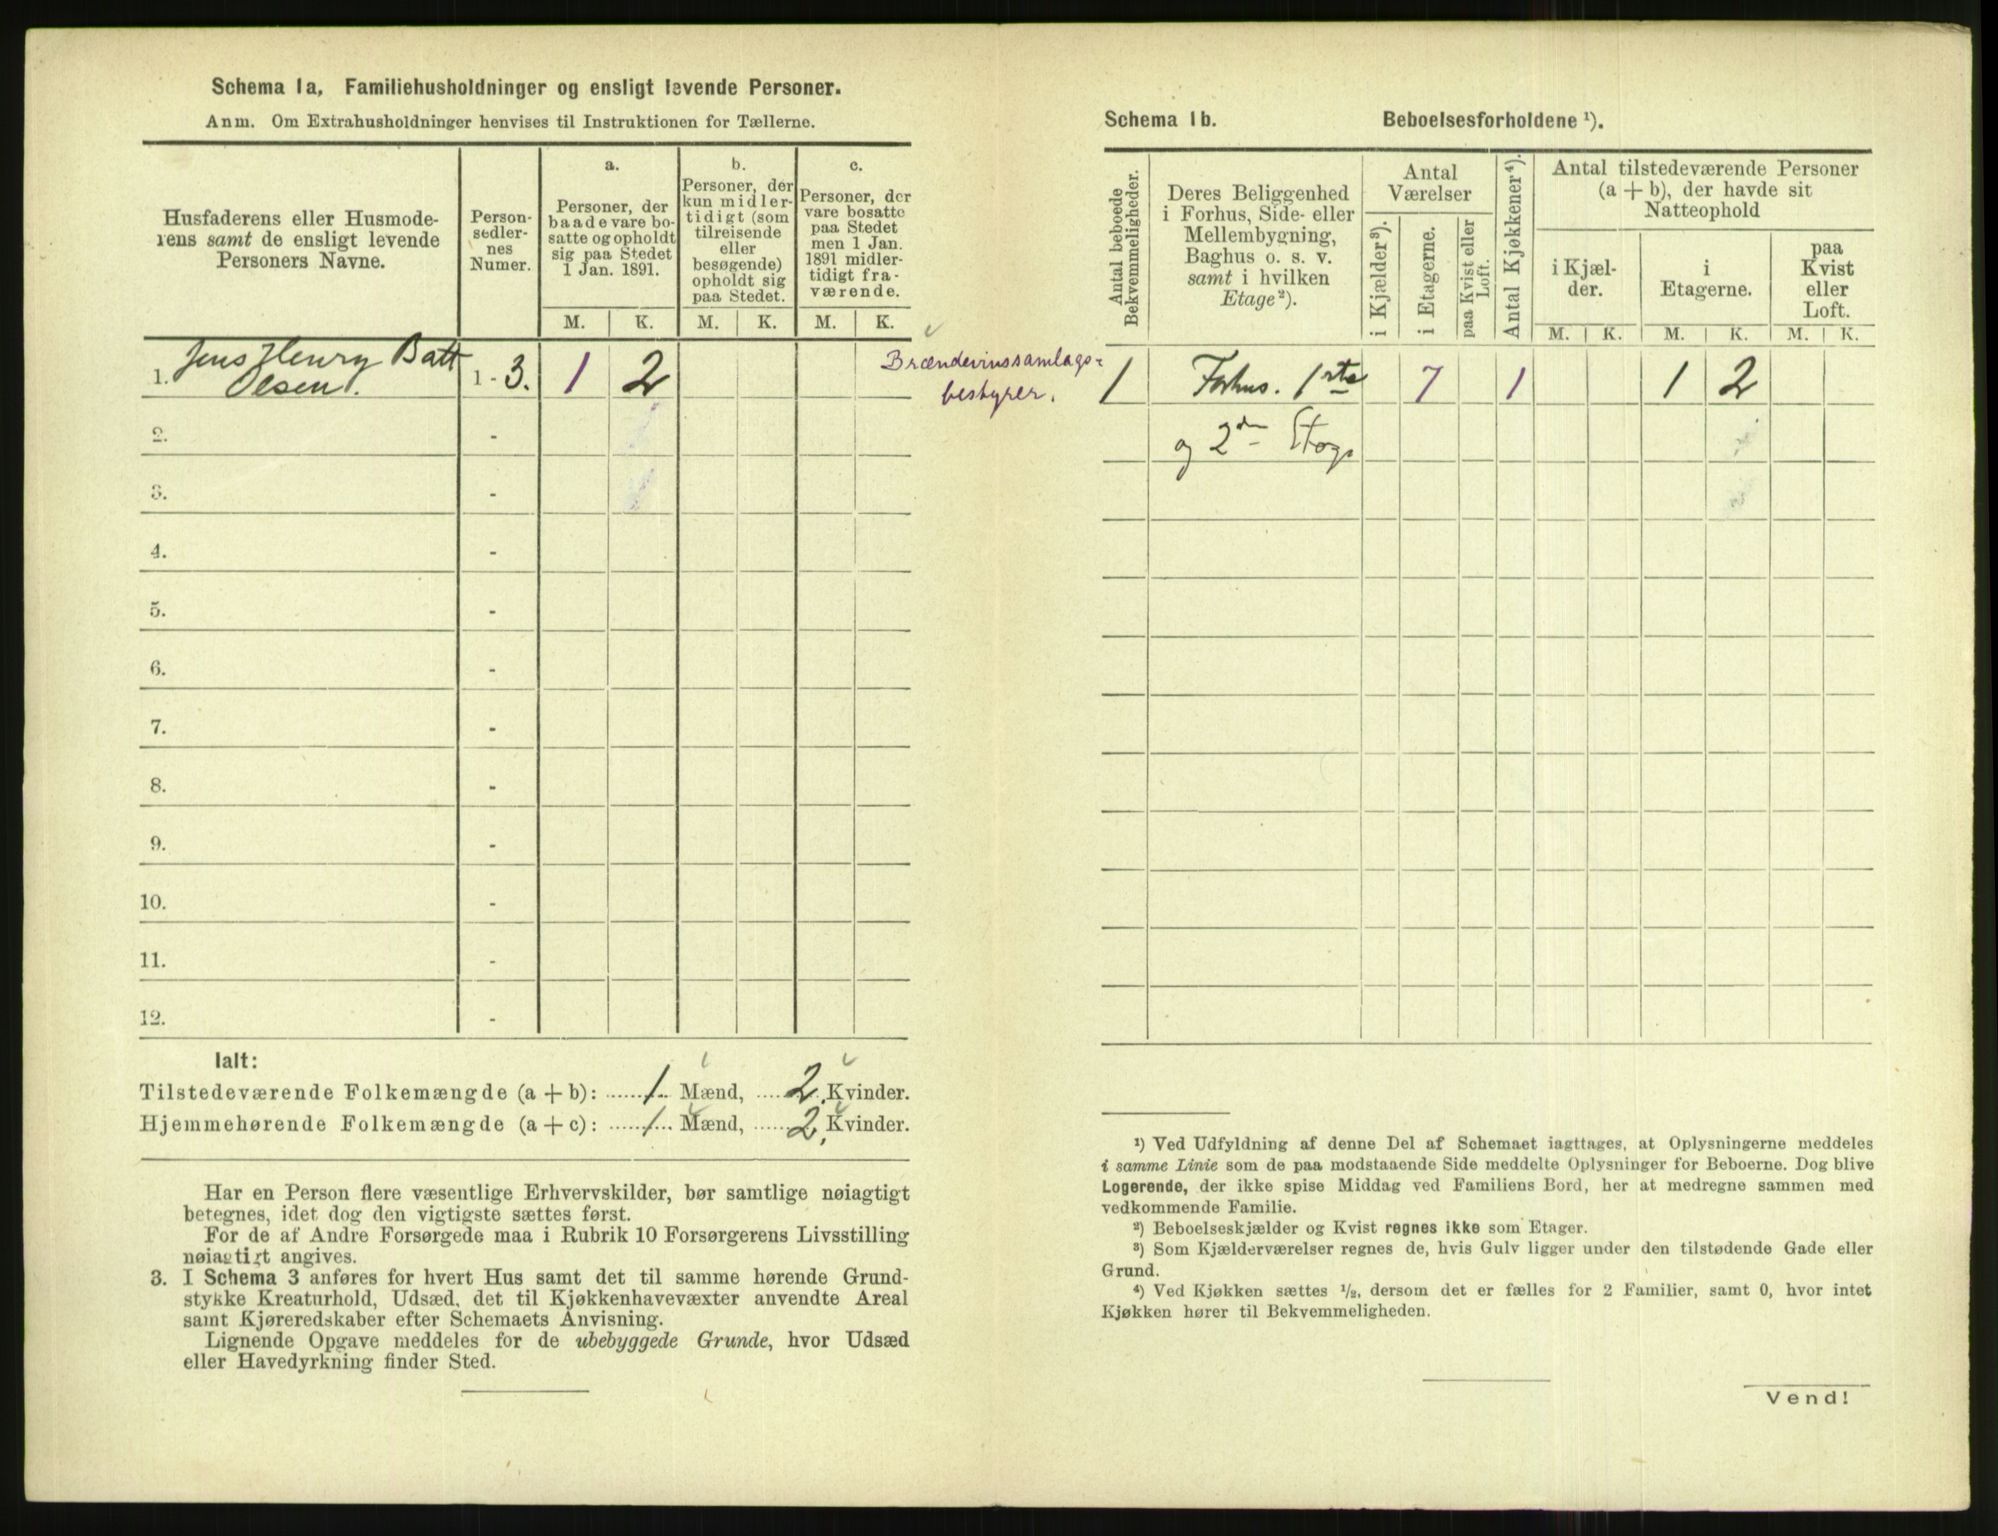 Schema 1a, Familiehusholdninger og ensligt levende Personer.
Anm. Om Extrahusholdninger henvises til Instruktionen for Tællerne.
Husfaderens eller Husmode-
rens samt de ensligt levende
Personers Navne.
Person-
sedler-
nes
Numer.
a.
Personer, der
baade vare bo-
satte og opholdt
sig paa Stedet
1 Jan. 1891.
b.
Personer, der
kun midler-
tidigt (som
tilreisende
eller
besøgende)
opholdt sig
paa Stedet.
c.
Personer, der
vare bosatte
paa Stedet
men 1 Jan.
1891 midler-
tidigt fra-
værende.
M. K. M. K. M. K.
Jens Henry Batt
1. Olsen. 1 - 3. 1 2
Brændevinssamlags-
bestyrer.
2. -
3. -
4. -
5. -
6. -
7. -
8. -
9. -
10. -
11. -
12. -
Ialt:
Tilstedeværende Folkemængde (a + b): 1 Mænd, 2 Kvinder.
Hjemmehørende Folkemængde (a + c): 1 Mænd, 2 Kvinder.
Har en Person flere væsentlige Erhvervskilder, bør samtlige nøiagtigt
betegnes, idet dog den vigtigste sættes først.
For de af Andre Forsørgede maa i Rubrik 10 Forsørgerens Livsstilling
nøiagtigt angives.
3. I Schema 3 anføres for hvert Hus samt det til samme hørende Grund-
stykke Kreaturhold, Udsæd, det til Kjøkkenhavevæxter anvendte Areal
samt Kjøreredskaber efter Schemaets Anvisning.
Lignende Opgave meddeles for de ubebyggede Grunde, hvor Udsæd
eller Havedyrkning finder Sted.
Schema 1b. Beboelsesforholdene ¹).
Antal beboede
Bekvemmeligheder.
Deres Beliggenhed
i Forhus, Side- eller
Mellembygning,
Baghus o. s. v.
samt i hvilken
Etage²).
Antal
Værelser
i Kjælder³).
i Etagerne.
paa Kvist eller
Loft.
Antal Kjøkkener⁴).
Antal tilstedeværende Personer
(a + b), der havde sit
Natteophold
i Kjæl-
der.
i
Etagerne.
paa
Kvist
eller
Loft.
M. K. M. K. M. K.
1 Forhus. 1ste 7 1 1 2
og 2den Etag.
¹) Ved Udfyldning af denne Del af Schemaet iagttages, at Oplysningerne meddeles
i samme Linie som de paa modstaaende Side meddelte Oplysninger for Beboerne. Dog blive
Logerende, der ikke spise Middag ved Familiens Bord, her at medregne sammen med
vedkommende Familie.
²) Beboelseskjælder og Kvist regnes ikke som Etager.
³) Som Kjælderværelser regnes de, hvis Gulv ligger under den tilstødende Gade eller
Grund.
⁴) Ved Kjøkken sættes ½, dersom det er fælles for 2 Familier, samt 0, hvor intet
Kjøkken hører til Bekvemmeligheden.
Vend!